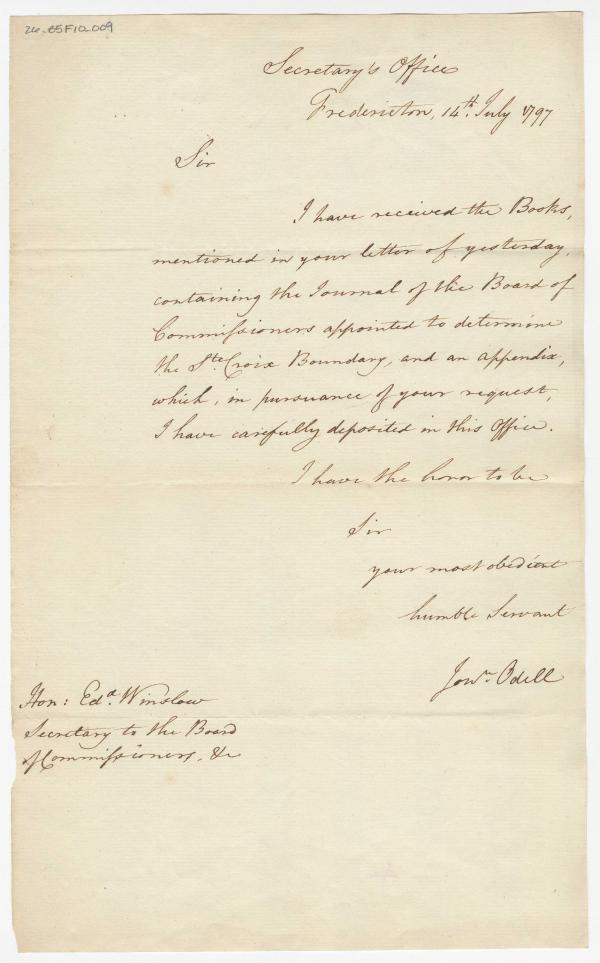 26-B5F10-009
Secretary's Office
Fredericton, 14th. July 1797
Sir
I have received the Books,
mentioned in your letter of yesterday,
containing the Journal of the Board of
Commissioners appointed to determine
the Ste. Croix Boundary, and an appendix,
which, in pursuance of your request,
I have carefully deposited in this Office.
I have the honor to be
Sir
your most obedient
humble Servant
Jonn Odell
Hon: Edd. Winslow
Secretary to the Board
of Commissioners, &c